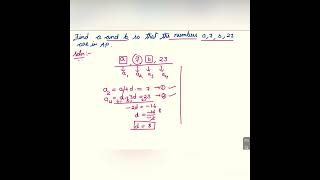 Find a and b so that the numbers a, 7, b, 23
are in AP.
soln:-
a, 7, b, 23
a₁ a₂ a₃ a₄
a₂ = a+d = 7 → ①
a₄ = a+3d = 23 → ②
-2d = -16
d = -16 8
-2
d = 8